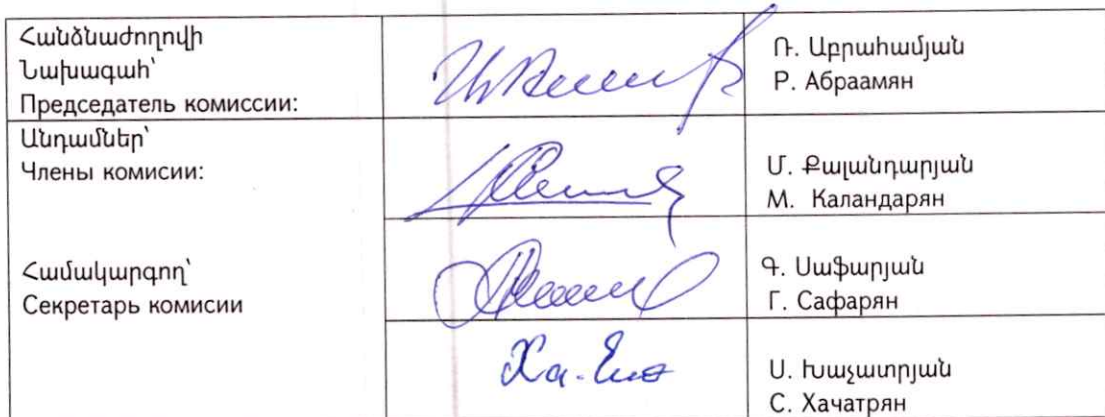 Հանձնաժողովի
Նախագահ՝
Председатель комиссии:
Ռ. Աբրահամյան
Р. Абраамян
Անդամներ՝
Члены комисии:
Մ. Քալանդարյան
М. Каландарян
Համակարգող՝
Секретарь комисии
Գ. Սաֆարյան
Г. Сафарян
Ս. Խաչատրյան
С. Хачатрян